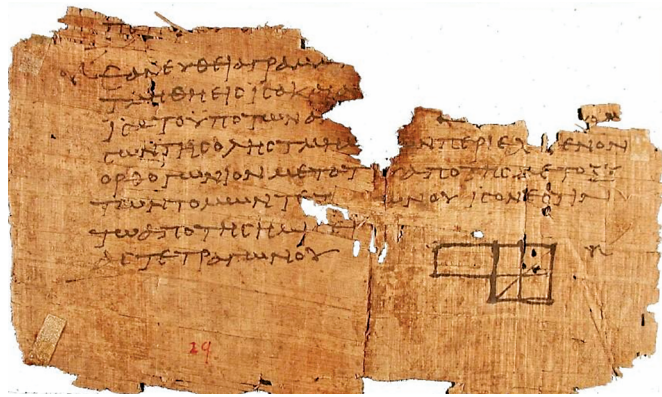 ΕΑΝ ΕΥΘΕΙΑ ΓΡΑΜ
ΤΜΗΘΗ ΕΙϹ ΙϹΑ ΚΑΙ Α
ΙϹΑ ΤΟ ΥΠΟ ΤΩΝ Α
ϹΩΝ ΤΗϹ ΟΛΗϹ ΤΜΗΜ ΩΝ ΠΕΡΙΕΧ ΜΕΝΟΝ
ΟΡΘΟΓΩΝΙΟΝ ΜΕΤΑ ΤΟΥ ΑΠΟ ΤΗϹ ΜΕΤΟΞΥ
ΤΩΝ ΤΟΜΩΝ ΤΕΤ ΩΝΟΥ ΙϹΟΝ ΕϹΤΙΝ
ΤΩ ΑΠΟ ΤΗϹ ΗΜΙϹΕΙ
ΑϹ ΤΕΤΡΑΓΩΝΟΥ
29